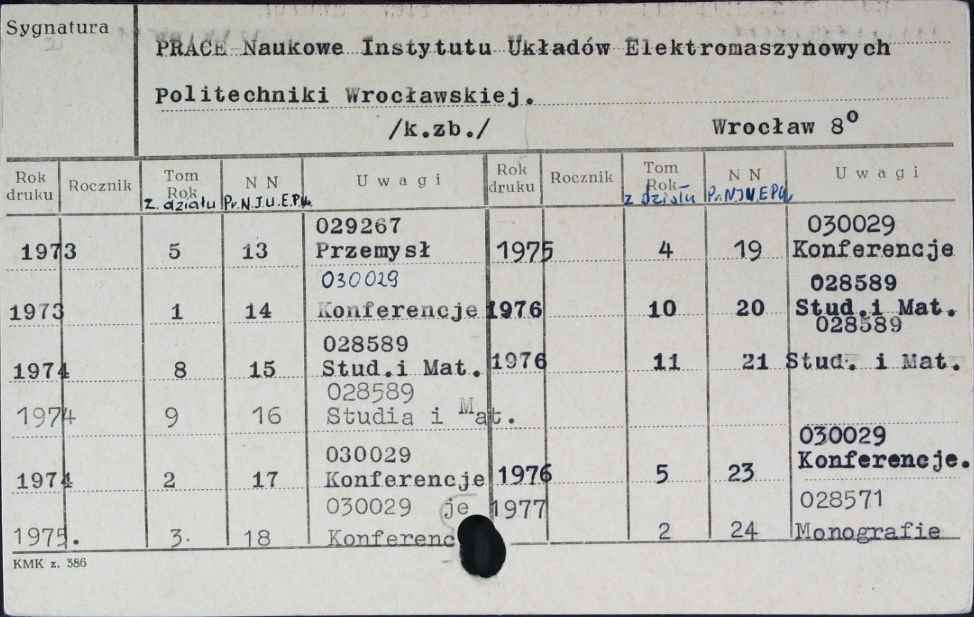 Sygnatura
PRACE Naukowe Instytutu Układów Elektromaszynowych
Politechniki Wrocławskiej.
/k.zb./ Wrocław 8º
Rok druku Rocznik Tom Rok z. działu N N Pr.N.I.U.E.P.W. Uwagi Rok druku Rocznik Tom Rok z działu N N Pr.N.I.U.E.P.W. Uwagi
029267 030029
1973 5 13 Przemysł 1975 4 19 Konferencje
030029 028589
1973 1 14 Konferencje 1976 10 20 Stud.i Mat.
028589 028589
1974 8 15 Stud.i Mat. 1976 11 21 Stud. i Mat.
028589
1974 9 16 Studia i Mat.
030029 030029
1974 2 17 Konferencje 1976 5 23 Konferencje.
030029 je 1977 028571
1975. 3. 18 Konferenc 2 24 Monografie
KMK z. 386